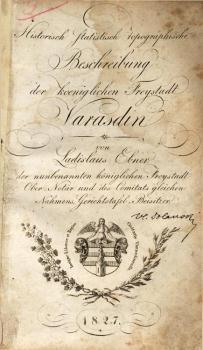 Historisch statistisch topographische
Beschreibung
der koeniglichen Freystadt
Varasdin
von
Ladislaus Ebner
der nunbenannten königlichen Freystadt
Ober Notär und des Comitats gleichen
Nahmens Gerichtstafel-Beisitzer
1827.